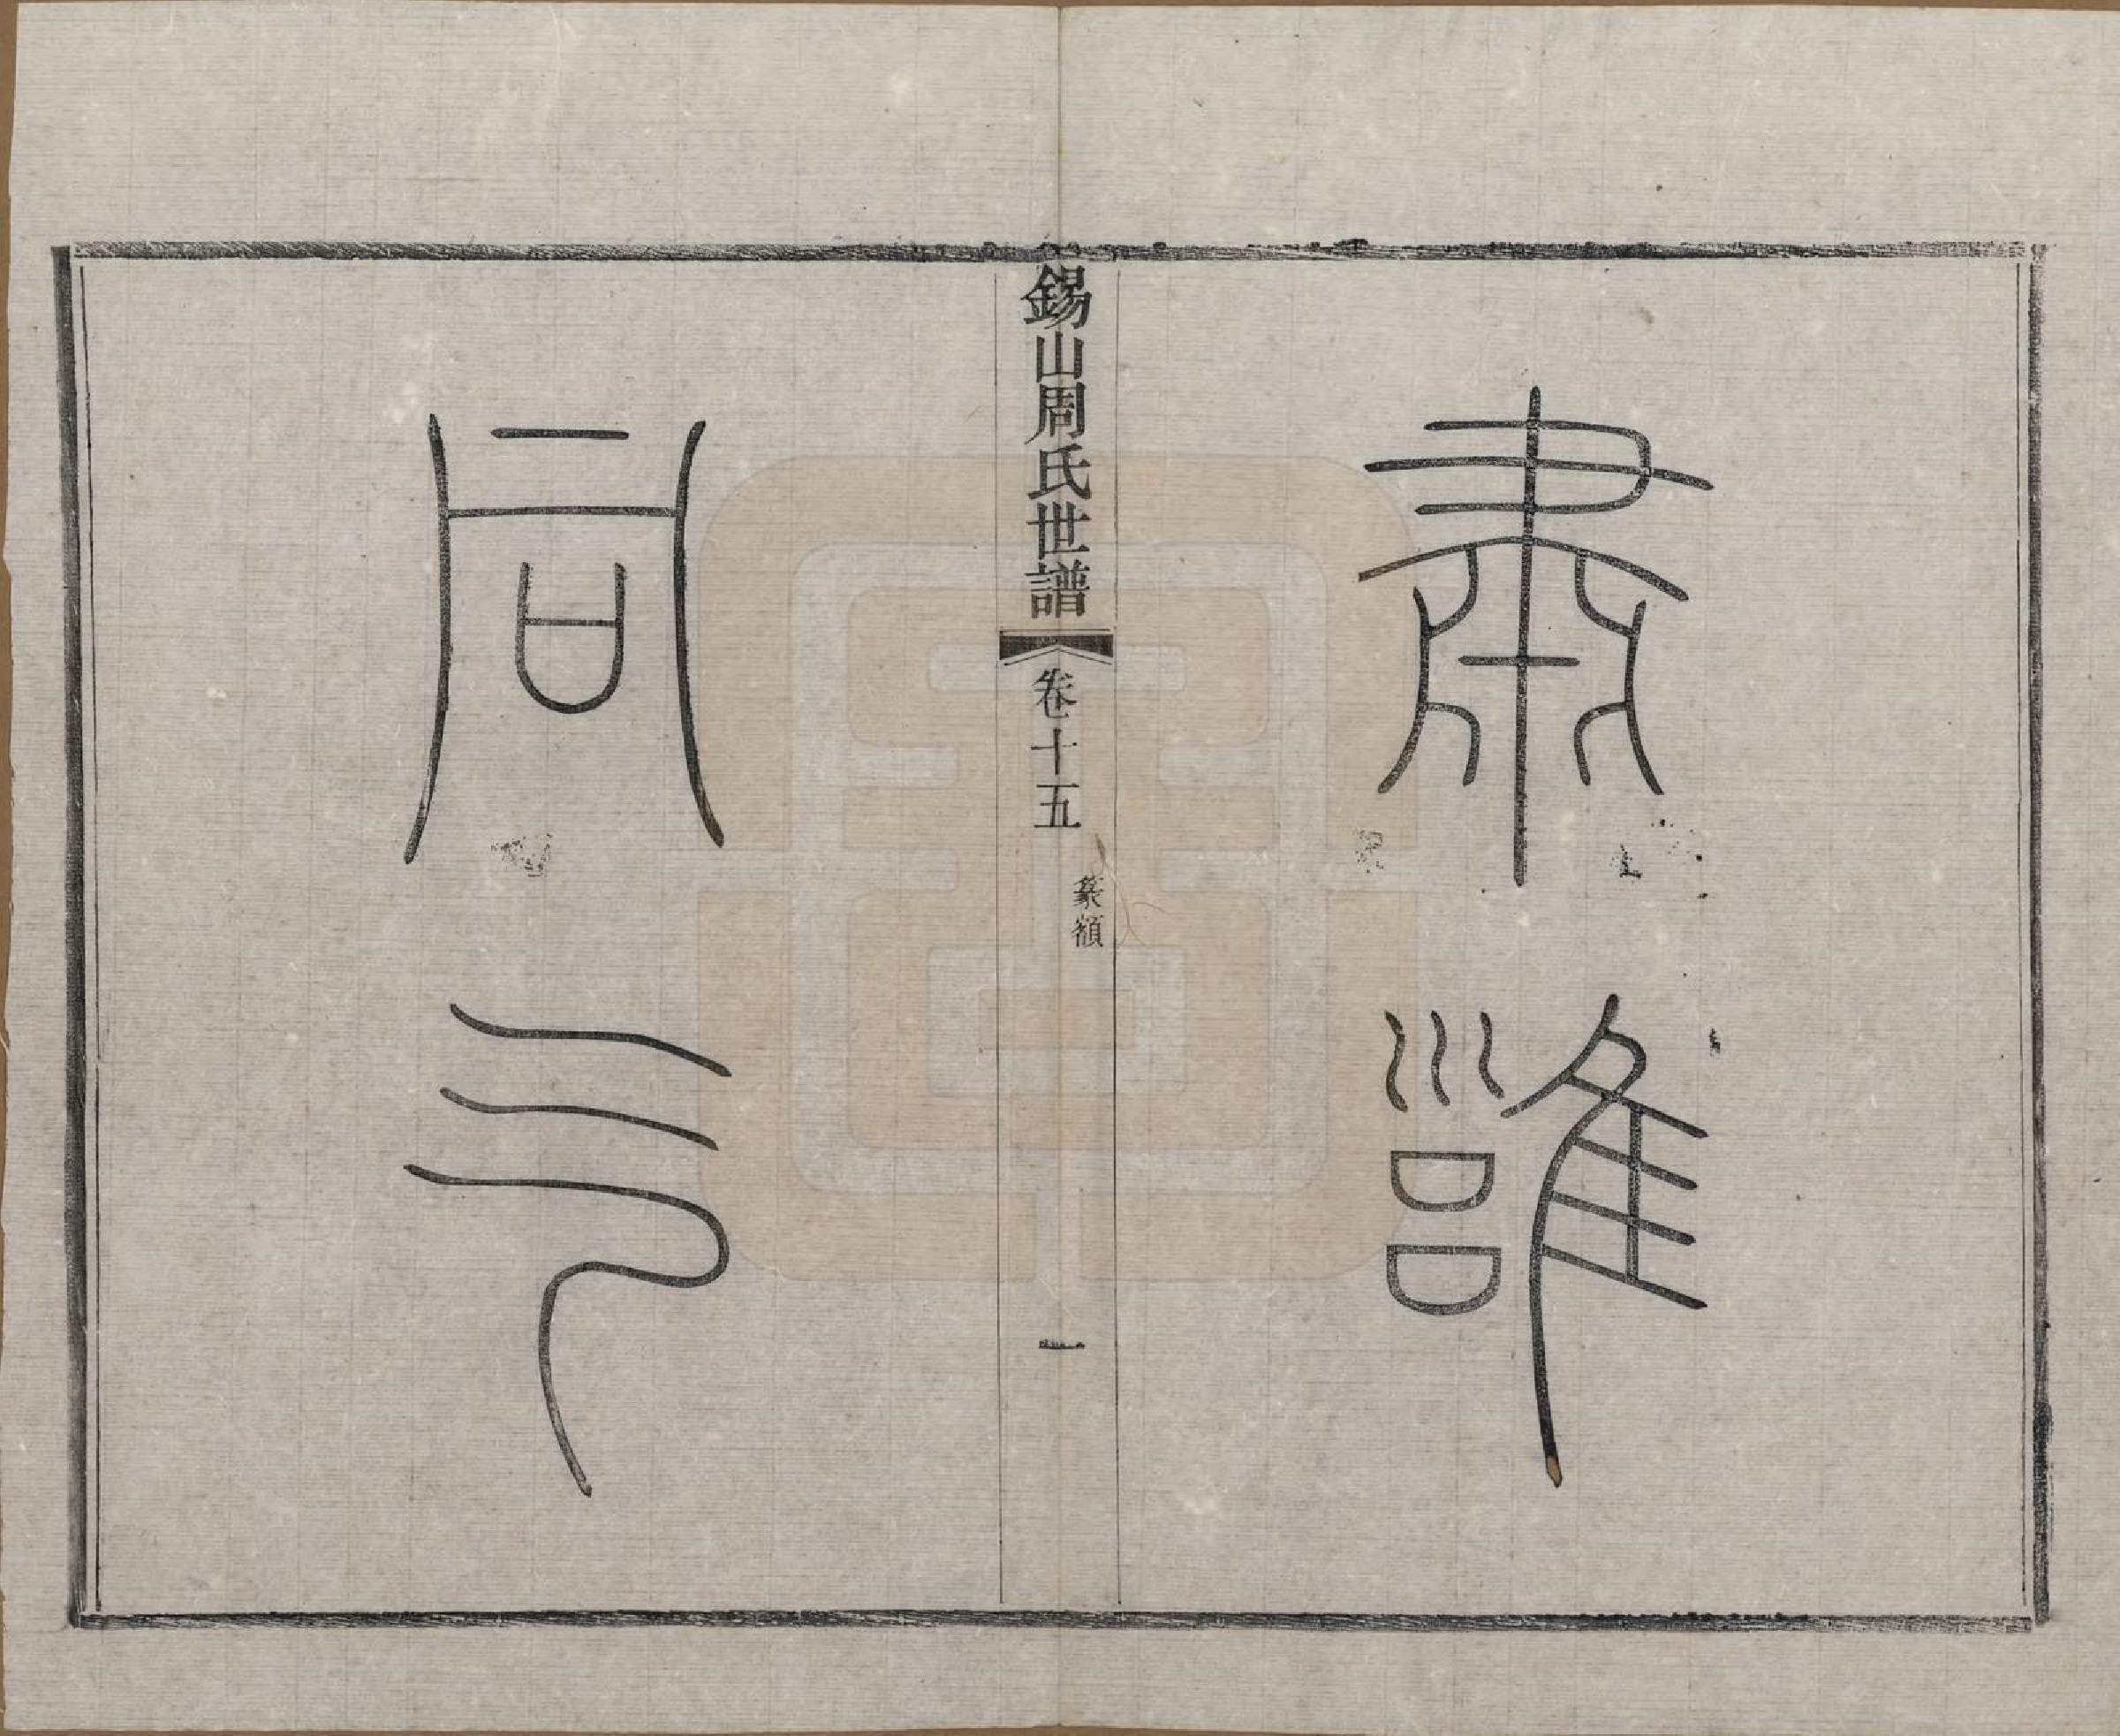 肅雝
錫山周氏世譜
卷十五
篆額
一
同气